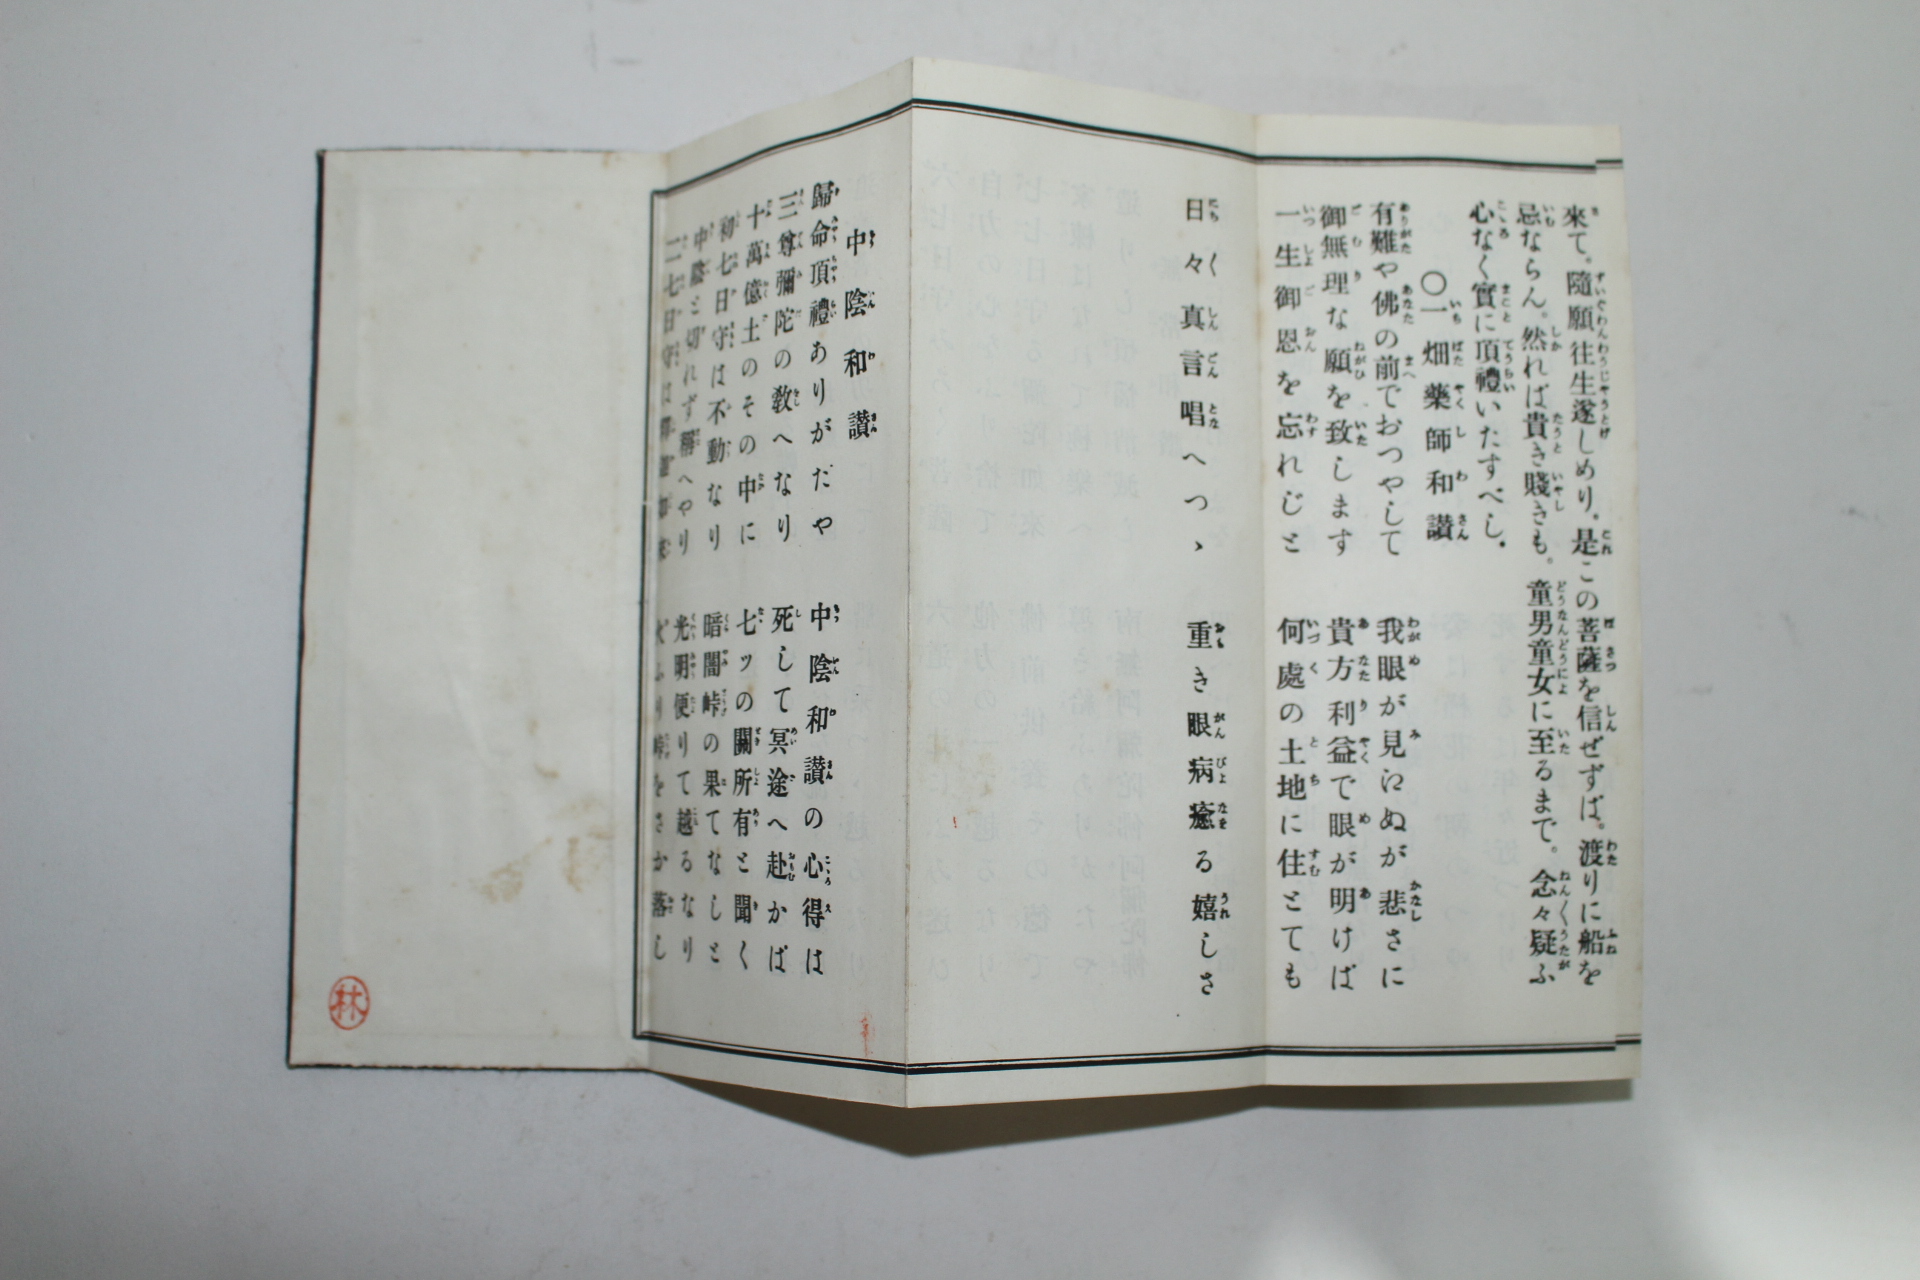 來て。隨願往生遂しめり。是この菩薩を信ぜずば。渡りに船を
忌ならん。然れば貴き賤きも。童男童女に至るまで。念々疑ふ
心なく實に頂禮いたすべし。
〇一畑藥師和讃
有難や佛の前でおつやして 我眼が見江ぬが悲さに
御無理な願を致します 貴方利益で眼が明けば
一生御恩を忘れじと 何處の土地に住とても
日々真言唱へつゝ 重き眼病癒る嬉しさ
中陰和讃
歸命頂禮ありがだや 中陰和讃の心得は
三尊彌陀の敎へなり 死して冥途へ赴かば
十萬億土のその中に 七ッの關所有と聞く
初七日守は不動なり 暗闇峠の果てなしと
中陰と切れず稱へやり 光明便りて越るなり
二七日守は釋迦如來 峠をさか落し
林